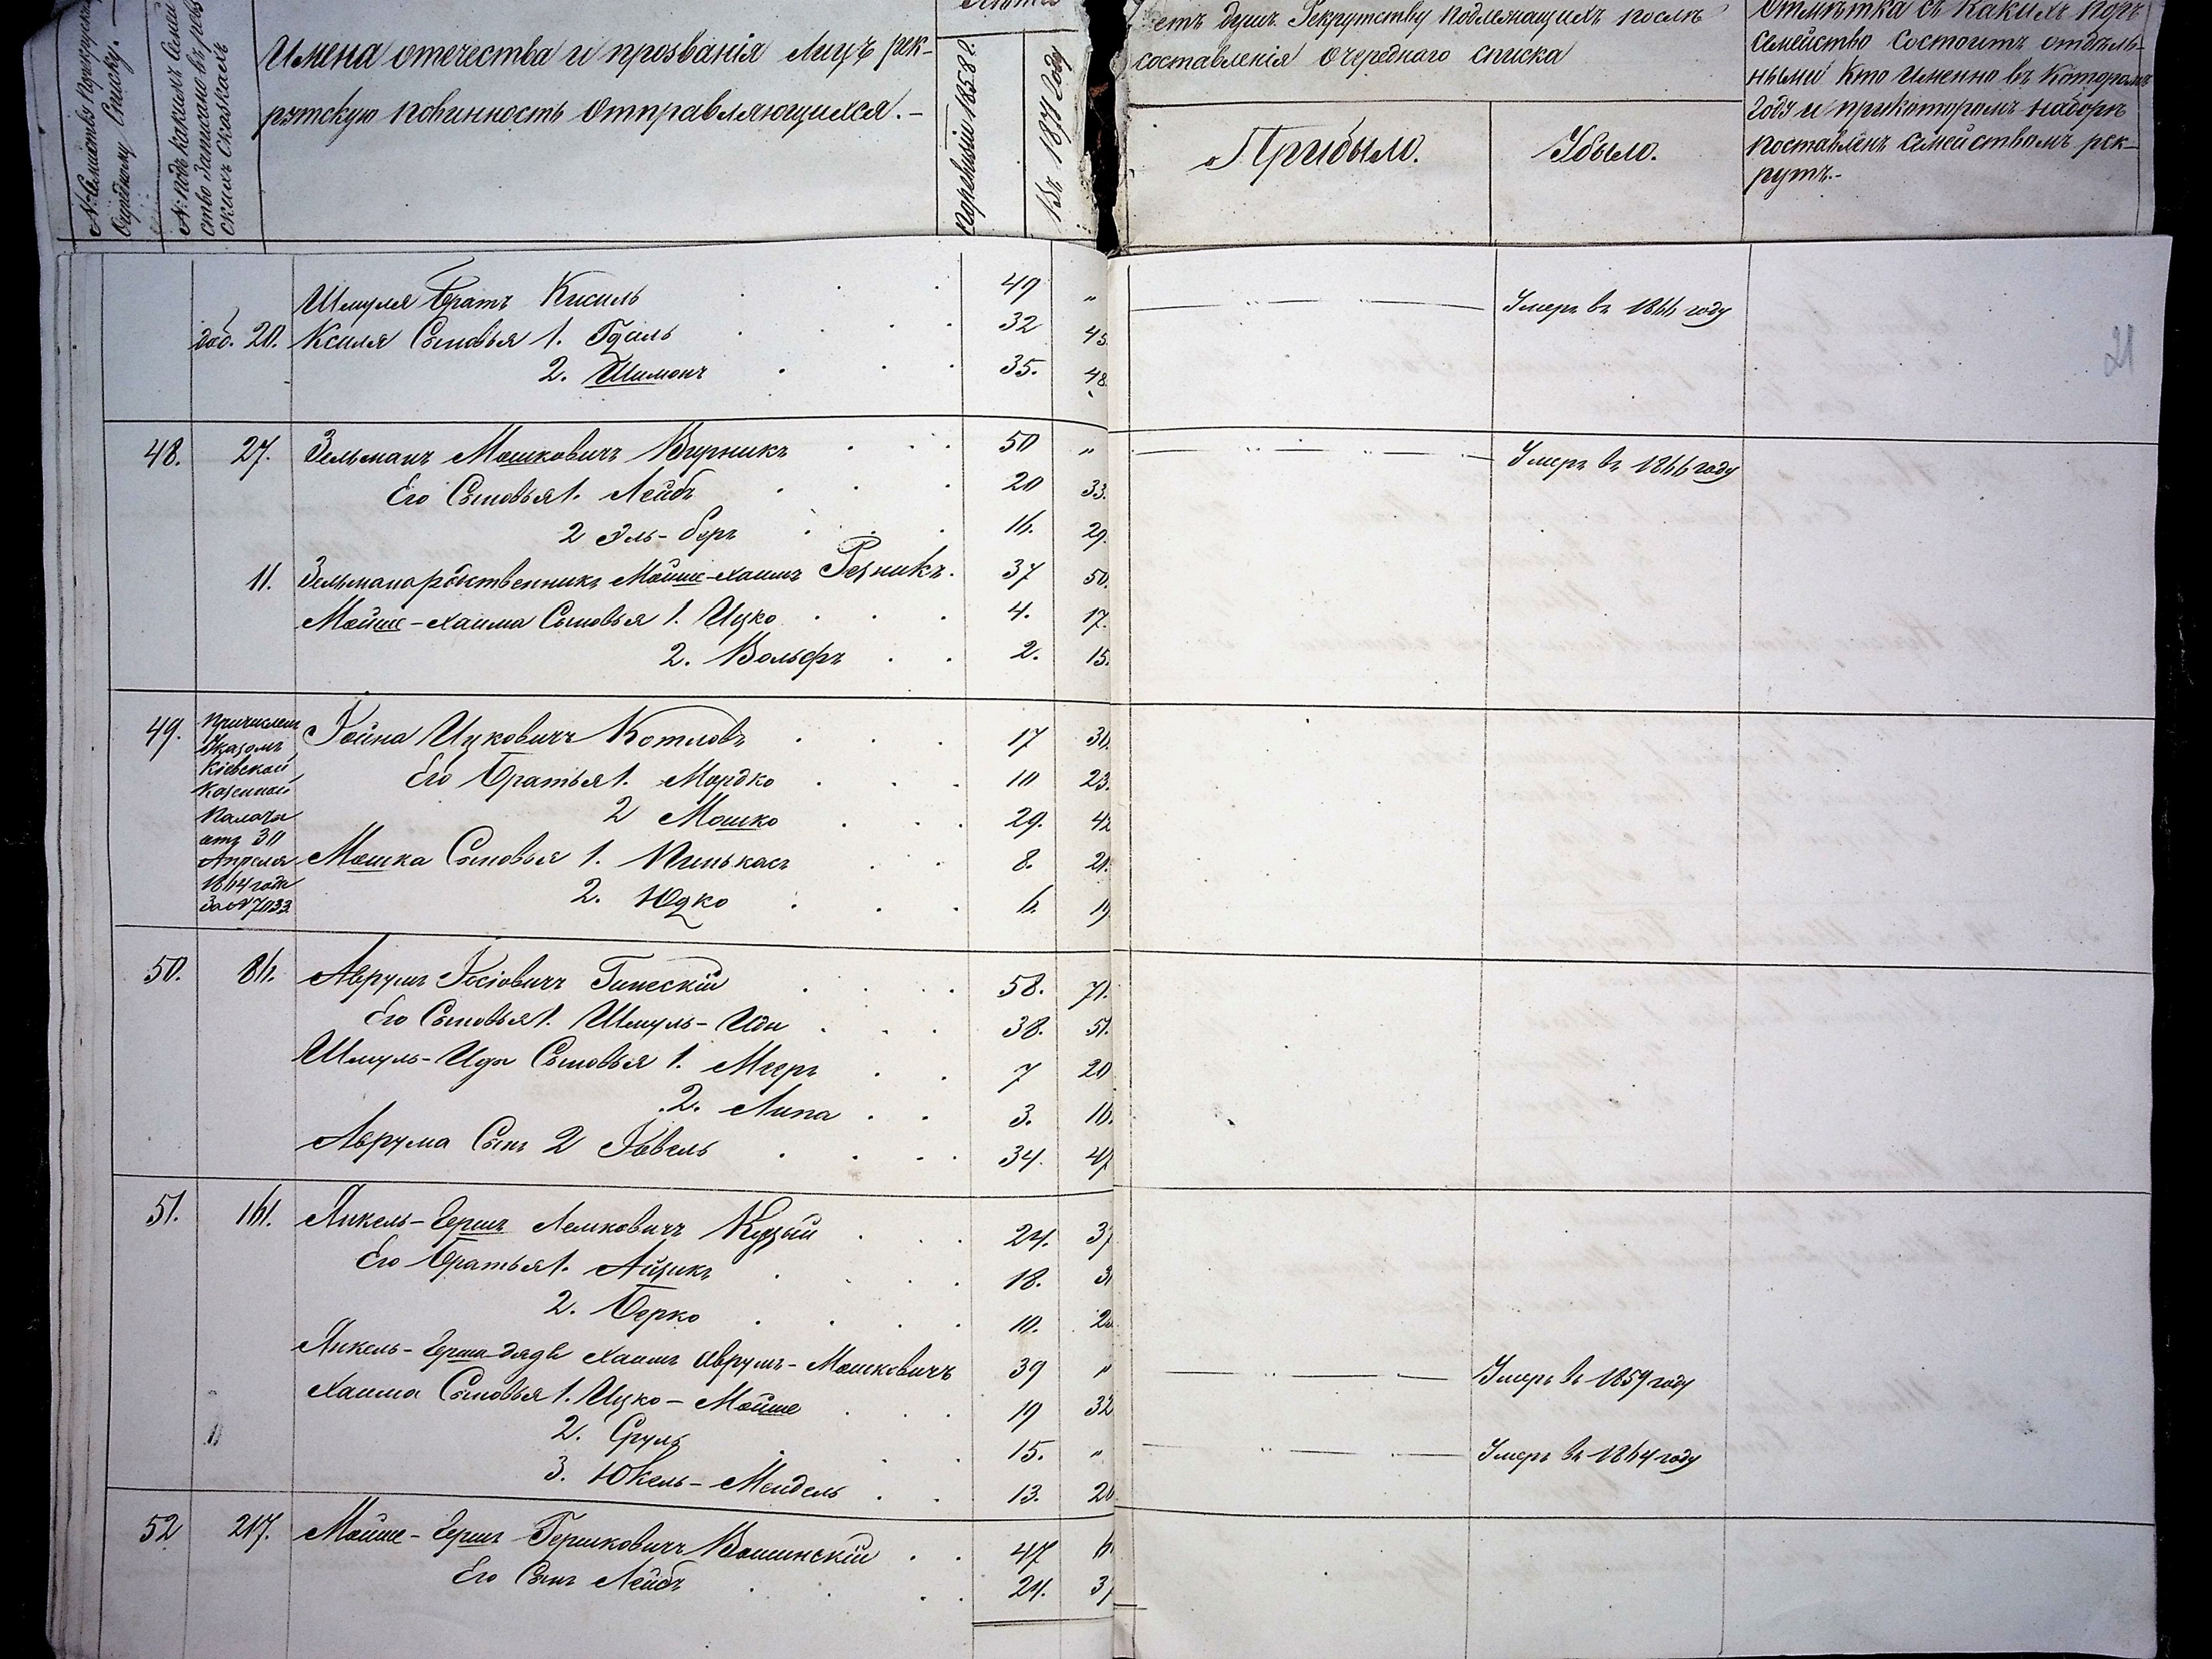 № Семейства по рекрутскому
Очередному Списку.
№ подъ какимъ Семей
ство Записано въ рев
скихъ Сказкахъ
Имена отечества и прозванія лицъ рек-
рутскую повинность отправляющихся.-
По ревизіи 1858 г.
Въ 1871 году
етъ душъ Рекрутству подлежащихъ послѣ
составленія очереднаго списка
Прибыло.
Убыло.
Отмѣтка съ какихъ поръ
семейство состоитъ отдѣль-
нымъ Кто именно въ котором
году и прикоторомъ наборѣ
поставленъ семействомъ рек-
рутъ.-
21
Шмуля Братъ Кисиль 49 "  Умеръ въ 1866 году
доб. 20. Ксиля Сыновья 1. Гдаль 32 45.
2. Шимонъ 35. 48.
48. 27. Зельманъ Мошковичъ Вирникъ 50 " Умеръ въ 1866 году
Его Сыновья 1. Лейбъ 20 33.
2 Эль-беръ 16. 29.
11. Зельмана родственникъ Мойше-Хаимъ Резникъ. 37 50.
Мойше-Хаима Сыновья 1. Ицко 4. 17.
2. Вольфъ 2. 15.
49. Причислен
Указомъ
Кіевской
Казенной
Палаты
отъ 30
Апреля
1864 года
За № 7033
Іойна Ицковичъ Котловъ 17 30.
Его Братья 1. Мордко 10 23.
2 Мошко 29. 42
Мошка Сыновья 1. Пинькасъ 8. 21.
2. Юдко 6. 19
50. 86. Аврумъ Іосіовичъ Гинескій 58. 71.
Его Сыновья 1. Шмуль-Иды 38. 51.
Шмуль-Иды Сыновья 1. Мееръ 7 20
2. Липа 3. 16.
Аврума Сынъ 2 Іовель 34. 47
51. 161. Янкель-Гершъ Лемковичъ Куцый 24. 37
Его Братья 1. Айзикъ 18. 31
2. Берко 10. 2
Янкель-Герша дядя Хаимъ Аврумъ-Мошковичъ 39 " Умеръ въ 1859 году
Хаима Сыновья 1. Ицко-Мойше 19 32
2. Сруль 15. " Умеръ въ 1864 году
3. Юкель-Мендель 13. 26
52 217. Мойше-Гершъ Гершковичъ Вошинскій 47 6
Его Сынъ Лейбъ 24. 37